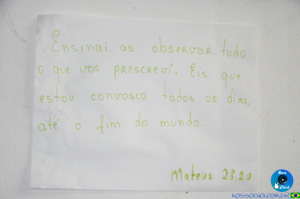 Ensinai-as observar tudo
o que vos prescrevi. Eis que
estou convosco todos os dias,
até o fim do mundo.
Mateus 28,20